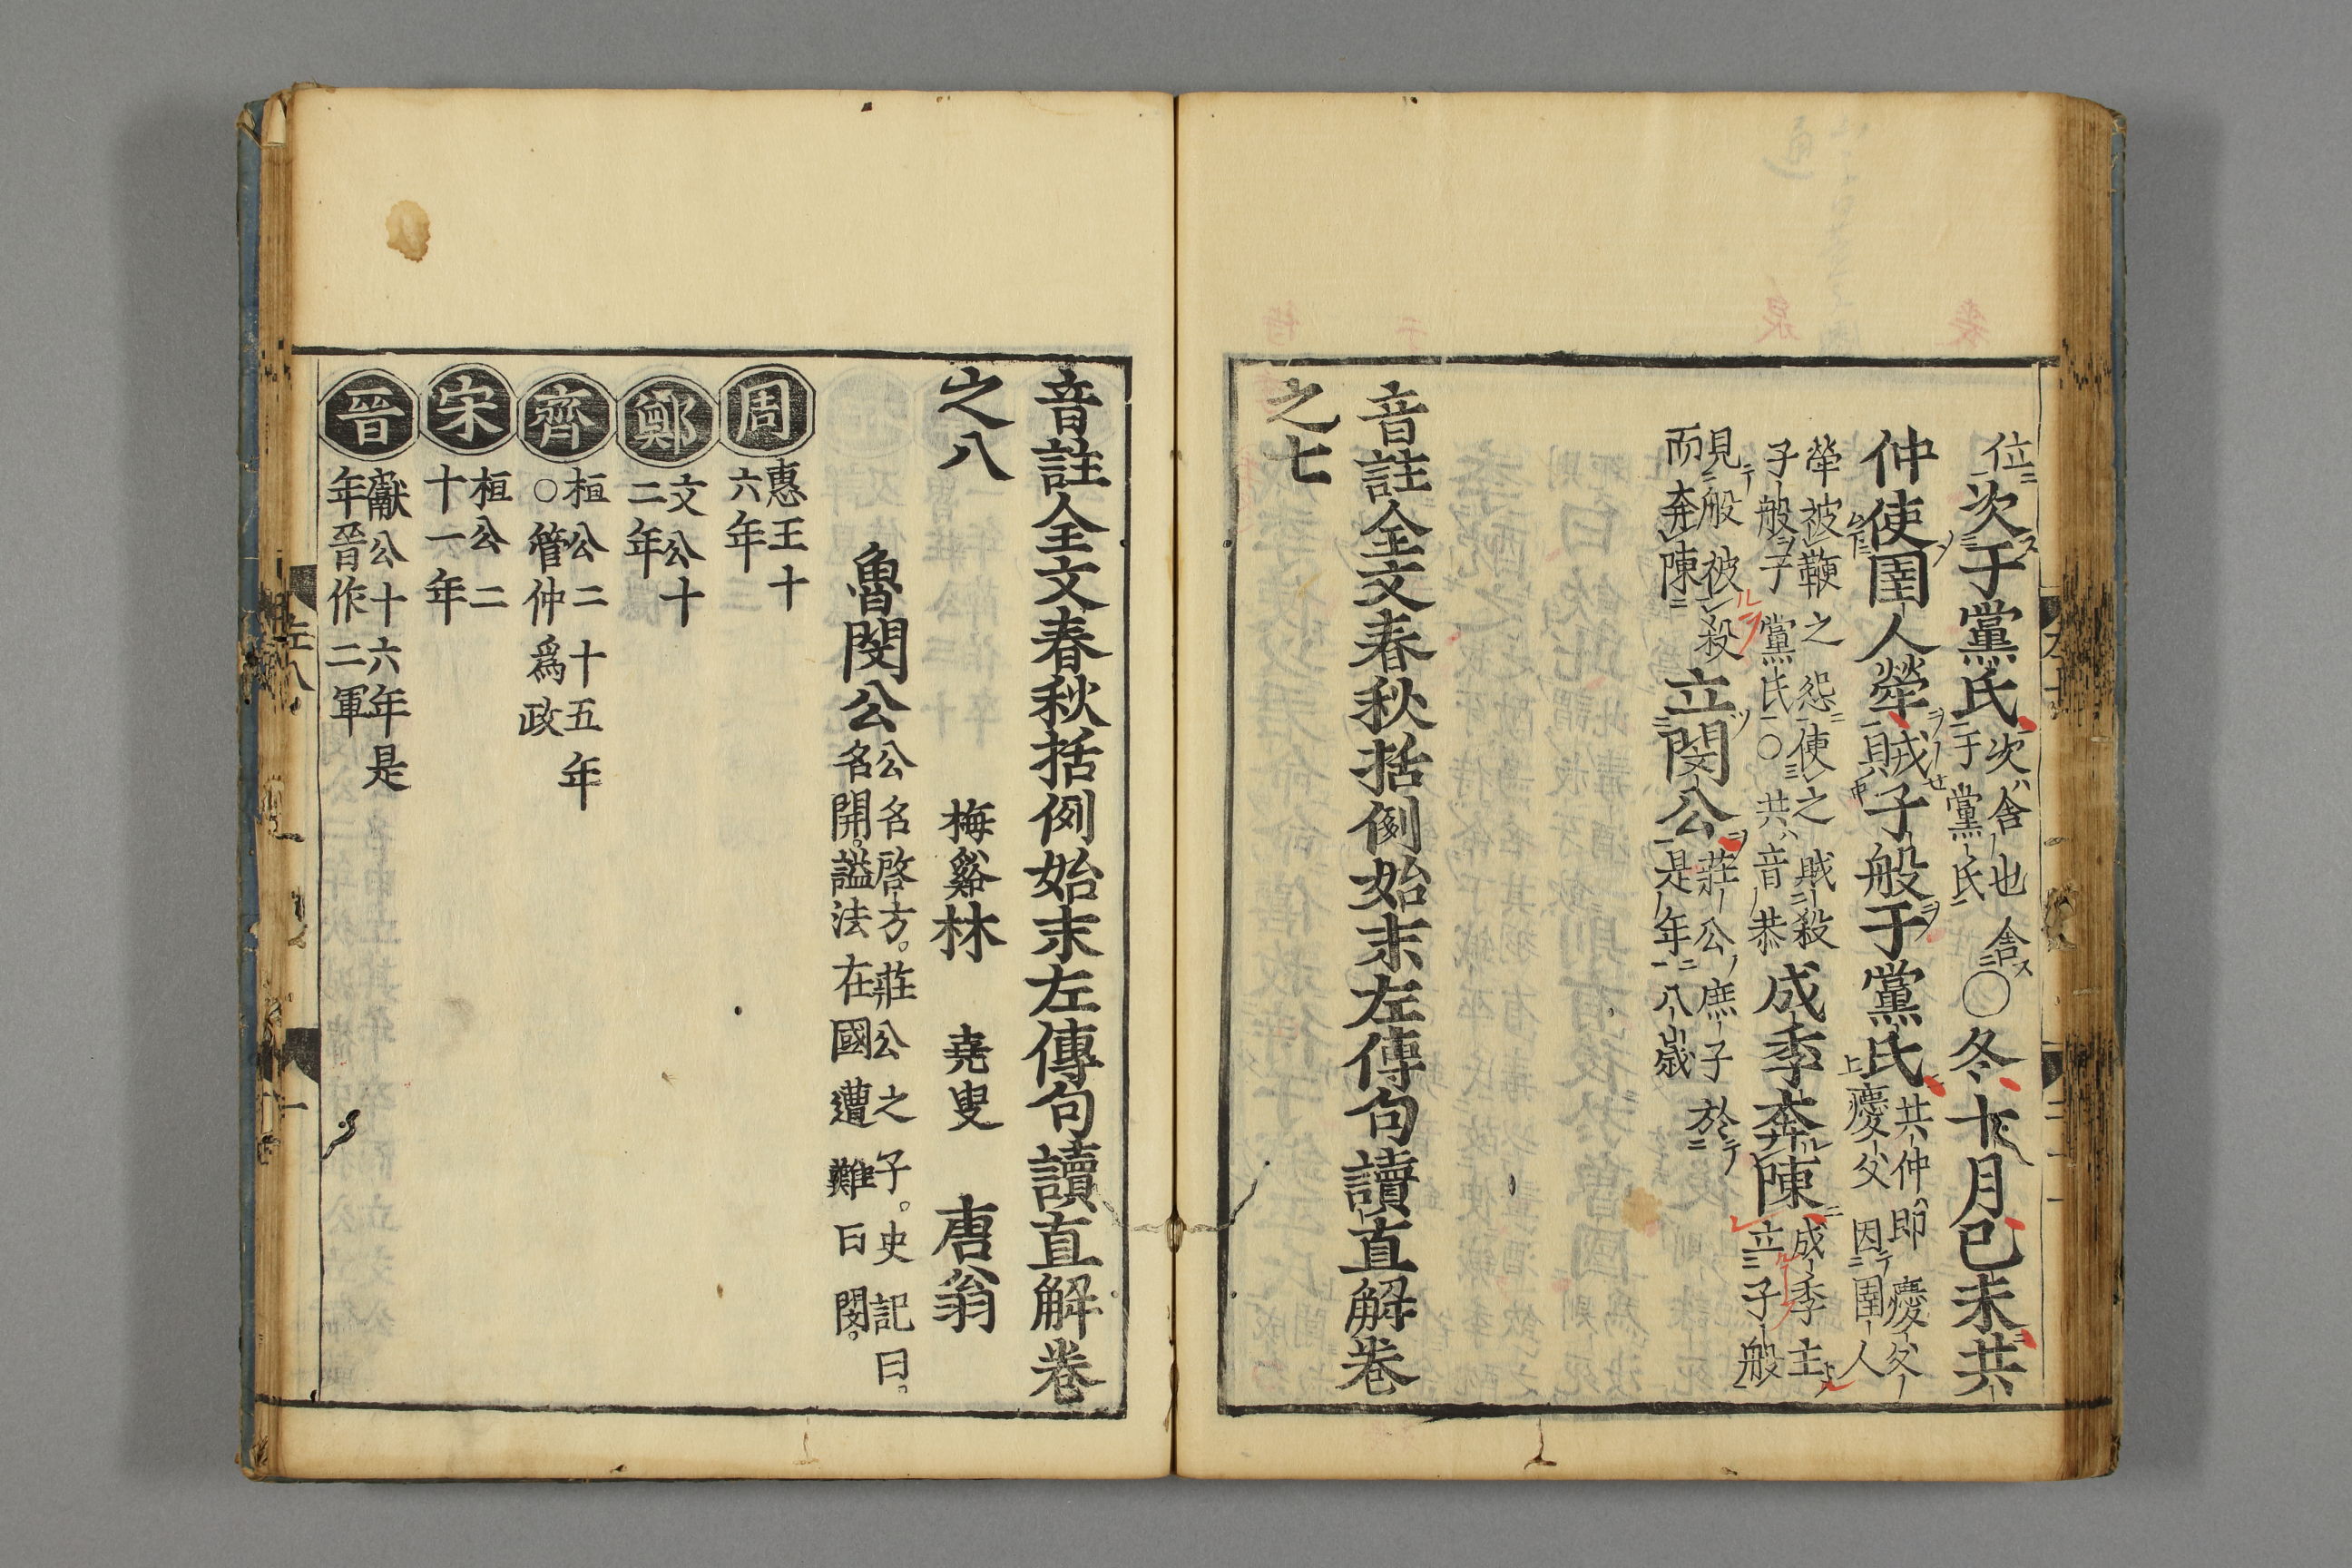 位次于黨氏次舍也舍于黨氏○冬十月己未共
仲使圉人犖賊子般于黨氏共仲即慶父慶父因圉人
犖被鞭之怨使之賊殺子般于黨氏○共音恭成季奔陳成季主立子般
見般被殺而奔陳立閔公莊公庶子於是年八歲
音註全文春秋括例始末左傳句讀直解卷
之七
音註全文春秋括例始末左傳句讀直解卷
之八
梅谿林 堯叟 唐翁
魯閔公公名啓方。莊公之子。史記曰。名開。謚法在國遭難曰閔。
周 惠王十六年
鄭 文公十二年
齊 桓公二十五年○管仲爲政
宋 桓公二十一年
晉 獻公十六年是年晉作二軍